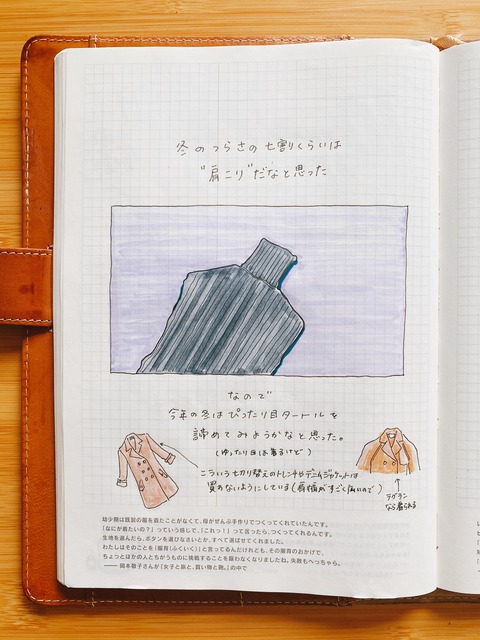 冬のつらさの七割くらいは
"肩こり"だなと思った
なので
今年の冬はぴったり目タートルを
諦めてみようかなと思った。
(ゆったり目は着るけど)
こういう切り替えのトレンチやデニムジャケットは
買わないようにしています(肩幅がすごく広いので)
ラグラン
なら着られる
幼少期は既製の服を着たことがなくて、母がぜんぶ手作りでつくってくれていたんです。
「なにが着たいの?」っていう感じで、「これっ!」って言ったら、つくってくれるんです。
生地を選んだら、ボタンを選びなさいとか、すべて選ばせてくれました。
わたしはそのことを「服育(ふくいく)」と言ってるんだけれども、その服育のおかげで、
ちょっとほかの人とちがうものに挑戦することを厭わなくなりましたね。失敗もへっちゃら。
―― 岡本敬子さんが『女子と旅と、買い物と鞄。』の中で